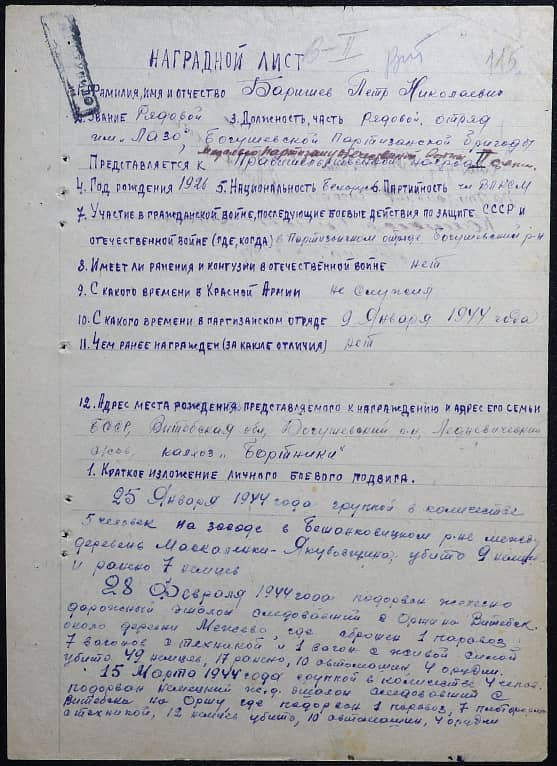 В-II
115
НАГРАДНОЙ ЛИСТ
1. Фамилия, имя и отчество Баришев Петр Николаевич
2. Звание Рядовой 3. Должность, часть рядовой, отряд
им. "ЛАЗО", Богушевской Партизанской Бригады
Медалью Партизану Отечественной Войны II степ.
Представляется к Правительственной награде
4. Год рождения 1926 5. Национальность белорус 6. Партийность чл ВЛКСМ
7. Участие в гражданской войне, последующие боевые действия по защите СССР и
отечественной войне (где, когда) в Партизанском отряде Богушевский р-н
8. Имеет ли ранения и контузии в отечественной войне нет
9. С какого времени в Красной Армии не служил
10. С какого времени в партизанском отряде 9 Января 1944 года
11. Чем ранее награжден (за какие отличия) нет
12. Адрес места рождения представляемого к награждению и адрес его семьи
БССР, Витебская обл, Богушевский р-н,
колхоз "Бортники"
1. Краткое изложение личного боевого подвига.
25 Января 1944 года группой в количестве
5 человек на засаде в Бешанковицком р-не между
деревень Маскаленки-Якубовщина, убито 9 немцев
и ранено 7 немцев
28 Февраля 1944 года подорван железно
дорожный эшалон следовавший с Орши на Витебск
около деревни Межево, где сброшен 1 паровоз
7 вагонов с техникой и 1 вагон с живой силой
убито 49 немцев, 17 ранено, 10 автомашин, 4 орудии.
15 Марта 1944 года группой в количестве 4 челов.
подорван немецкий ж.д. эшалон следовавший с
Витебска на Оршу где подорван 1 паровоз, 7 платформ
с техникой, 12 немцев убито, 10 автомашин, 4 орудии